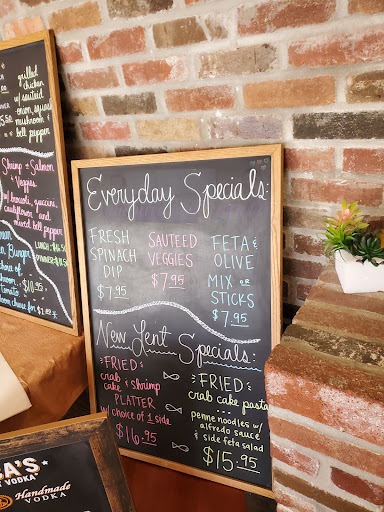 grilled
chicken
w/ sauteed
onion, squash
mushroom &
bell pepper
Shrimp & Salmon
& Veggies
w/ broccoli, zucchini,
cauliflower and
mixed bell pepper
LUNCH
DINNER
Burger
choice of
$10.95
tomato
Everyday Specials:
FRESH
SPINACH
DIP
$7.95
SAUTEED
VEGGIES
$7.95
FETA &
OLIVE
MIX OR
STICKS
$7.95
New Lent Specials:
FRIED
crab
cake & shrimp
PLATTER
w/ choice of 1 side
$16.95
FRIED
crab cake pasta
penne noodles w/
alfredo sauce
& side feta salad
$15.95
Handmade
VODKA